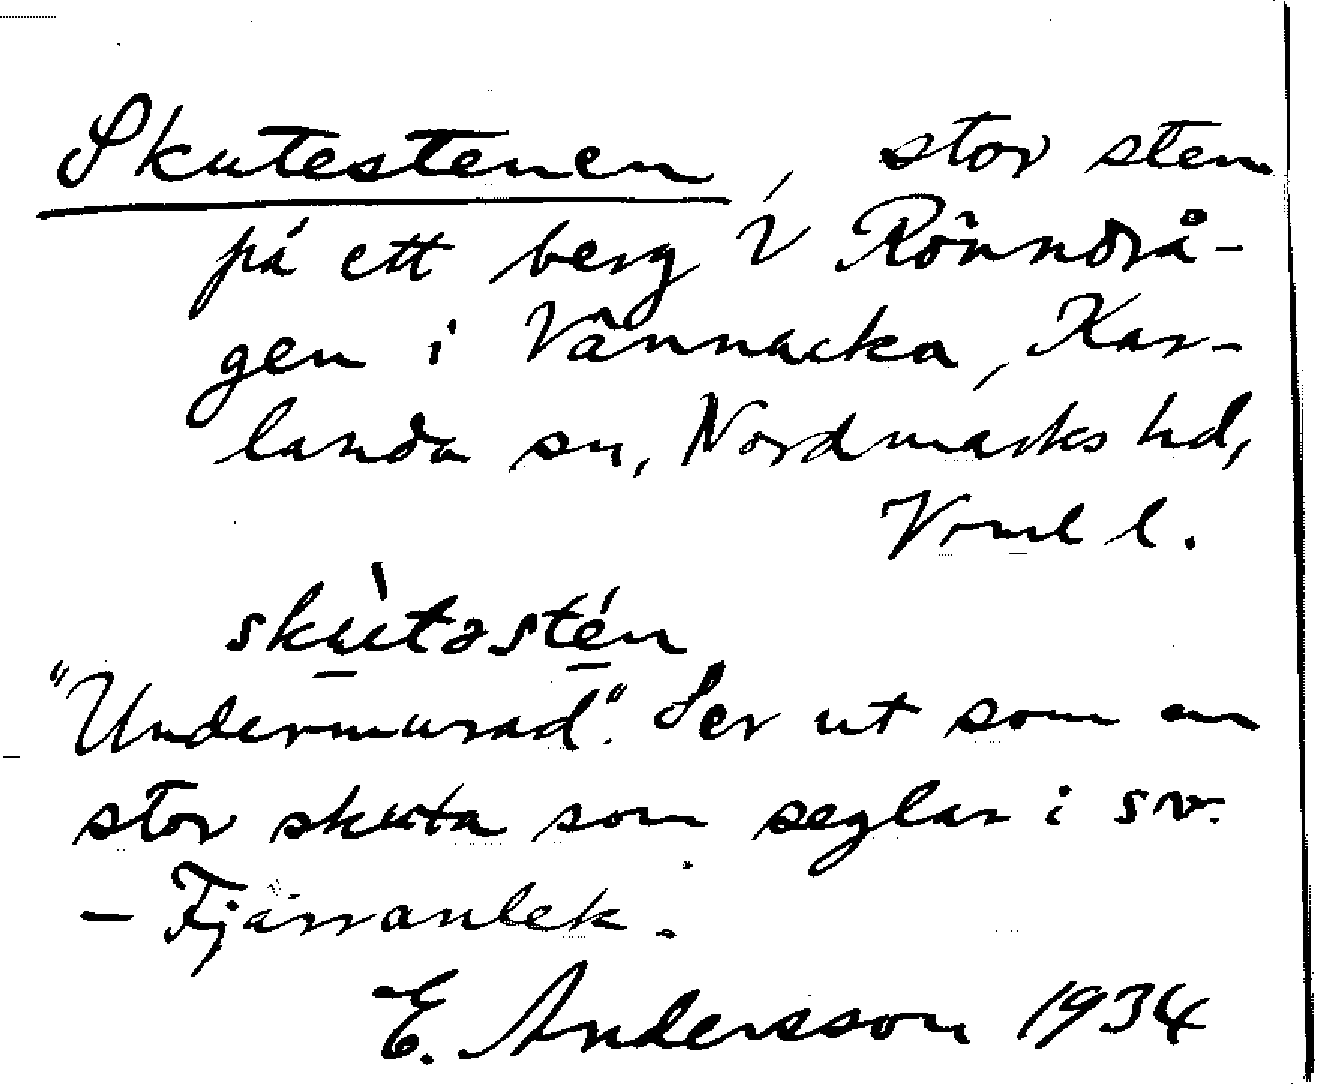 Skutestenen, stor sten
på ett berg i Rönndrå-
gen i Vännacka, Kar-
landa sn, Nordmarks hd,
Vrml l.
skùtəstén
"Undermurad". Ser ut som en
stor skuta som seglar i sv.
- Fjärranlek.
E. Andersson 1934